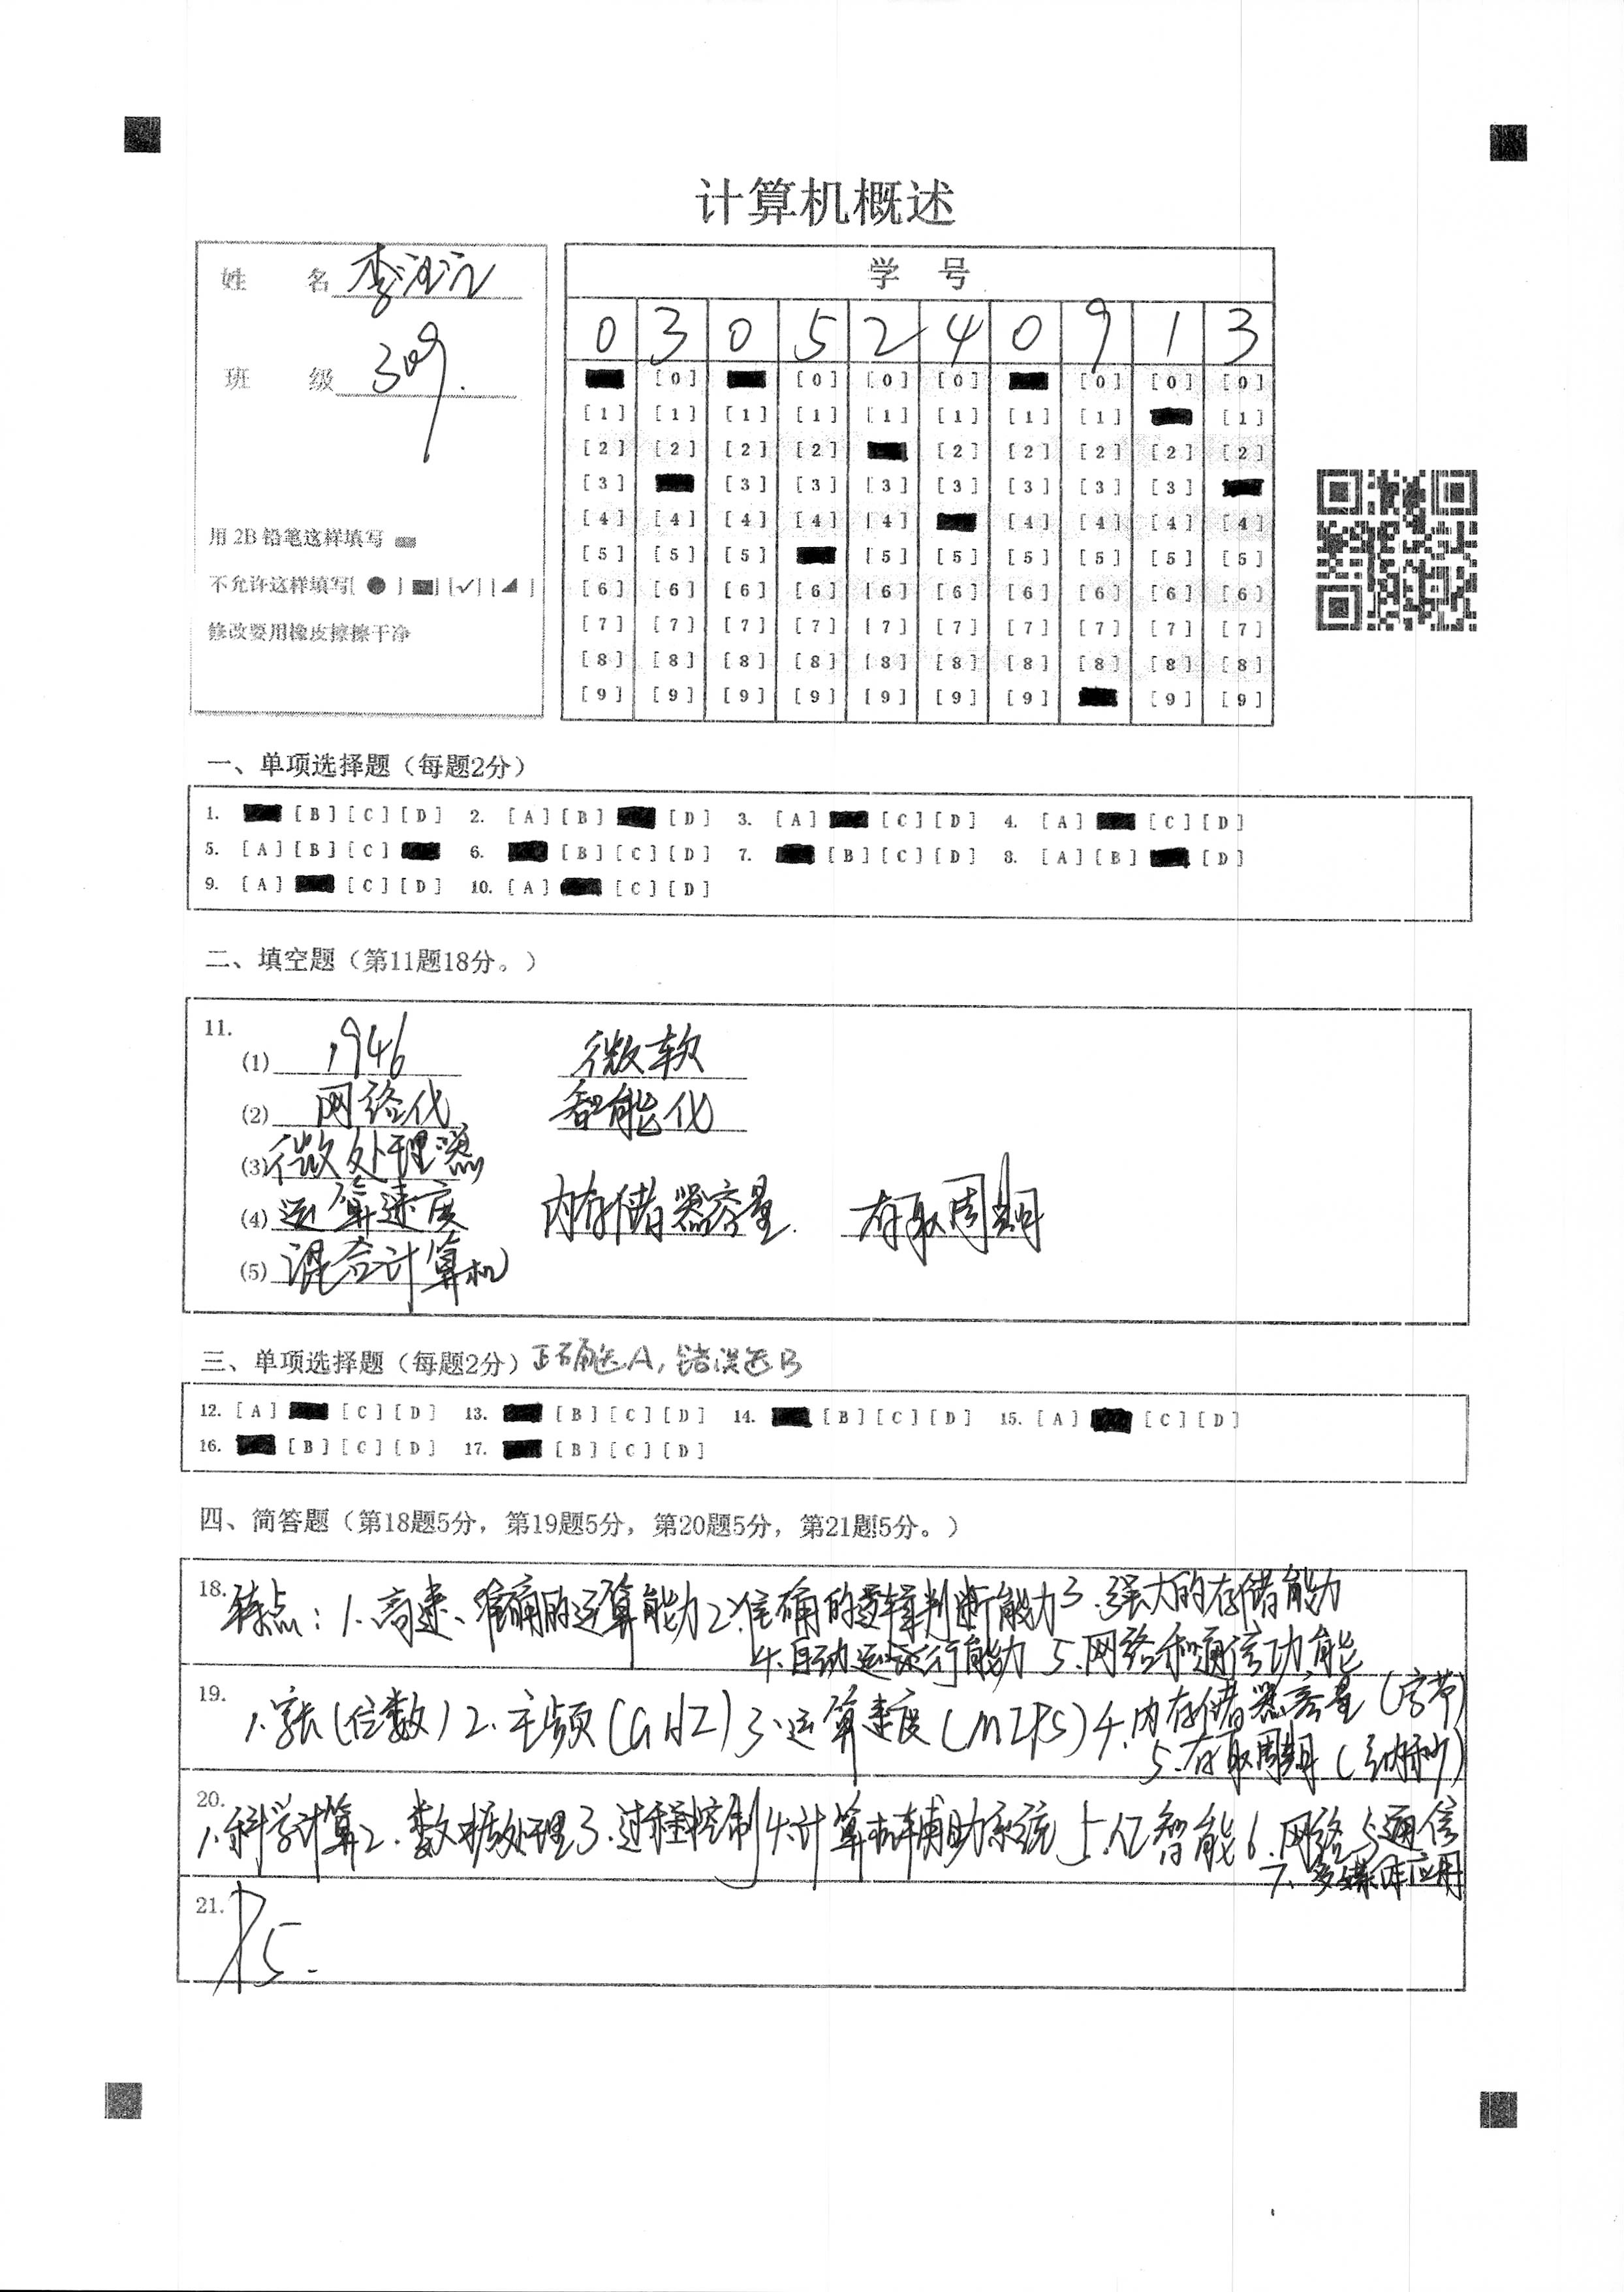 计算机概述
姓 名 李
班 级 309.
用 2B 铅笔这样填写
不允许这样填写[ ● ] [■] [✓] [◢ ]
修改要用橡皮擦擦干净
学 号
0 3 0 5 2 4 0 9 1 3
[0] [0] [0] [0] [0] [0] [0]
[1] [1] [1] [1] [1] [1] [1] [1] [1]
[2] [2] [2] [2] [2] [2] [2] [2] [2]
[3] [3] [3] [3] [3] [3] [3] [3]
[4] [4] [4] [4] [4] [4] [4] [4] [4]
[5] [5] [5] [5] [5] [5] [5] [5] [5]
[6] [6] [6] [6] [6] [6] [6] [6] [6] [6]
[7] [7] [7] [7] [7] [7] [7] [7] [7] [7]
[8] [8] [8] [8] [8] [8] [8] [8] [8] [8]
[9] [9] [9] [9] [9] [9] [9] [9] [9]
一、单项选择题（每题2分）
1. [B] [C] [D] 2. [A] [B] [D] 3. [A] [C] [D] 4. [A] [C] [D]
5. [A] [B] [C] 6. [B] [C] [D] 7. [B] [C] [D] 8. [A] [B] [D]
9. [A] [C] [D] 10. [A] [C] [D]
二、填空题（第11题18分。）
11.
(1) 1946 微软
(2) 网络化 智能化
(3) 微处理器
(4) 运算速度 内存储器容量. 存取周期
(5) 混合计算机
三、单项选择题（每题2分）正确选A, 错误选B
12. [A] [C] [D] 13. [B] [C] [D] 14. [B] [C] [D] 15. [A] [C] [D]
16. [B] [C] [D] 17. [B] [C] [D]
四、简答题（第18题5分，第19题5分，第20题5分，第21题5分。）
18. 特点：1.高速、准确的运算能力 2.准确的逻辑判断能力 3.强大的存储能力
4.自动运行能力 5.网络和通信功能
19. 1.字长(位数) 2.主频(GHZ) 3.运算速度(MIPS) 4.内存储器容量(字节)
5.存取周期(纳秒)
20. 1.科学计算 2.数据处理 3.过程控制 4.计算机辅助系统 5.人工智能 6.网络与通信
7.多媒体应用
21. P5.